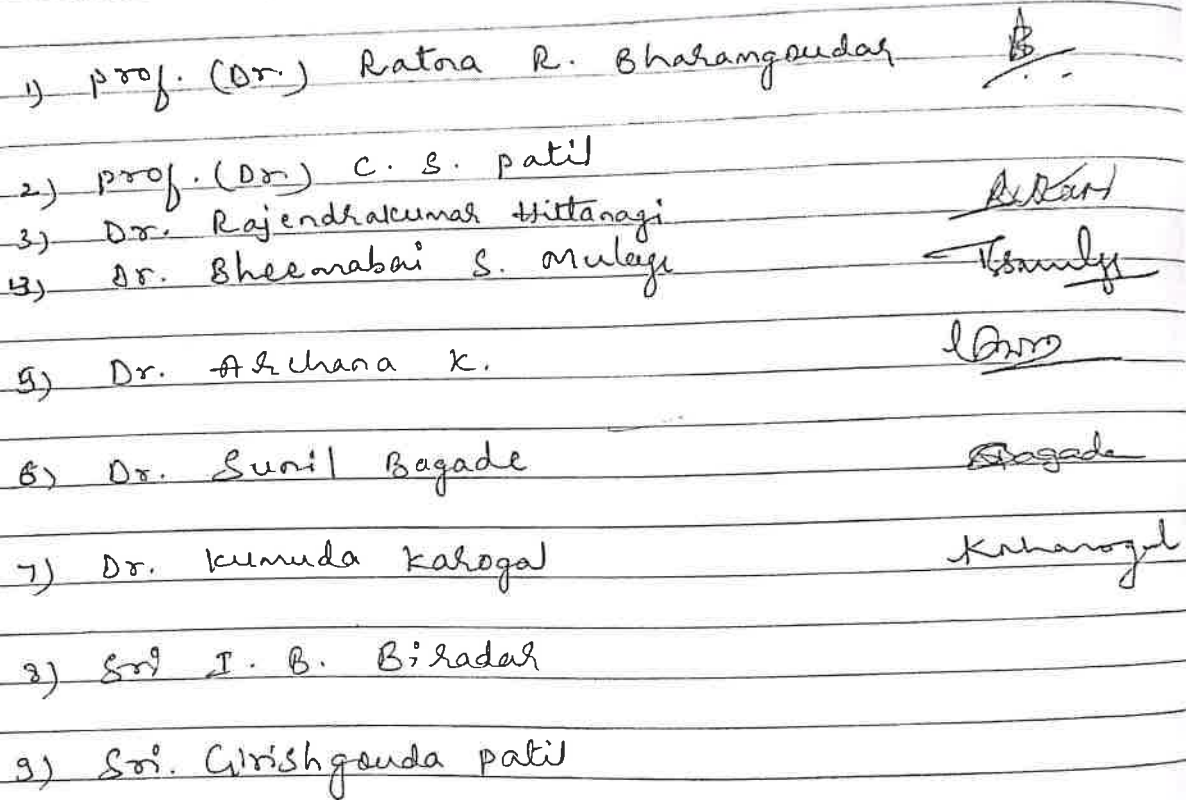 1) prof. (Dr.) Ratna R. Bharamgoudar
2) prof. (Dr.) C. S. patil
3) Dr. Rajendrakumar Hittanagi
4) Dr. Bheemabai S. Mulage
5) Dr. Archana K.
6) Dr. Sunil Bagade Bagade
7) Dr. Kumuda Karogal
8) Sri I. B. Biradar
9) Sri. Girishgouda patil